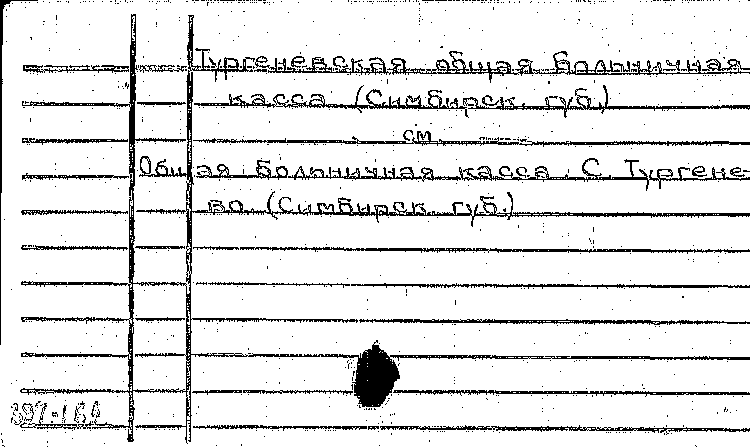 Тургеневская общая больничная
касса (Симбирск. губ.)
см.
Общая больничная касса. С. Тургене-
во (Симбирск. губ.)